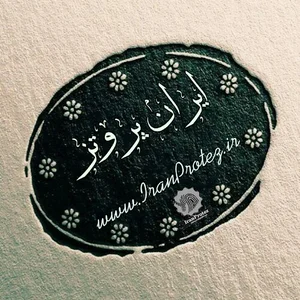 ایران پروتز
www.IranProtez.ir
IranProtez